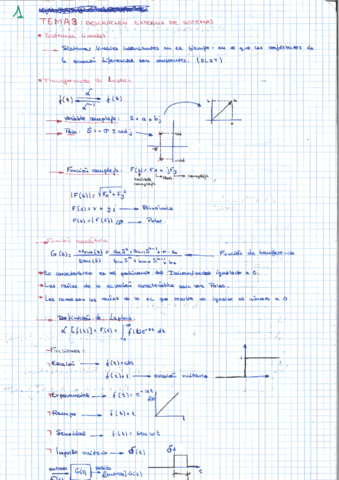 1
TEMA 3: DESCRIPCIÓN EXTERNA DE SISTEMAS
* Sistemas Lineales
→ Sistemas lineales invariantes en el tiempo: en el que los coeficientes de
la ecuación diferencial son constantes. (SLIT)
* Transformada de Laplace
f(t) ⇄ f(s)
→ Variable compleja: S = a + bj
→ Polo: S = -σ ± ωdj
→ Función compleja: F(s) = Fx + jFy
variable compleja
Real
compleja
|F(s)| = √Fx² + Fy²
F(s) = x + yj → Binómica
F(s) = |F(s)| → Polar
→ Función
G(s) = Num(s) / Den(s) → Función de transferencia
→ Ec característica es el polinomio del Denominador igualado a 0.
→ Las raíces de la ecuación característica son los Polos.
→ Los ceros son las raíces de la ec. que resulta de igualar el número a 0
→ Definición de Laplace:
[f(t)] = F(s) = ∫ f(t) e^-st dt
→ Funciones:
→ Escalón → f(t) = cte
f(t) = 1 → escalón unitario
→ Exponencial → f(t) = e^-at
→ Rampa → f(t) = t
→ Senoidal → f(t) = sin ωt
→ Impulso unitario → δ(t)
entrada
G(s)
salida